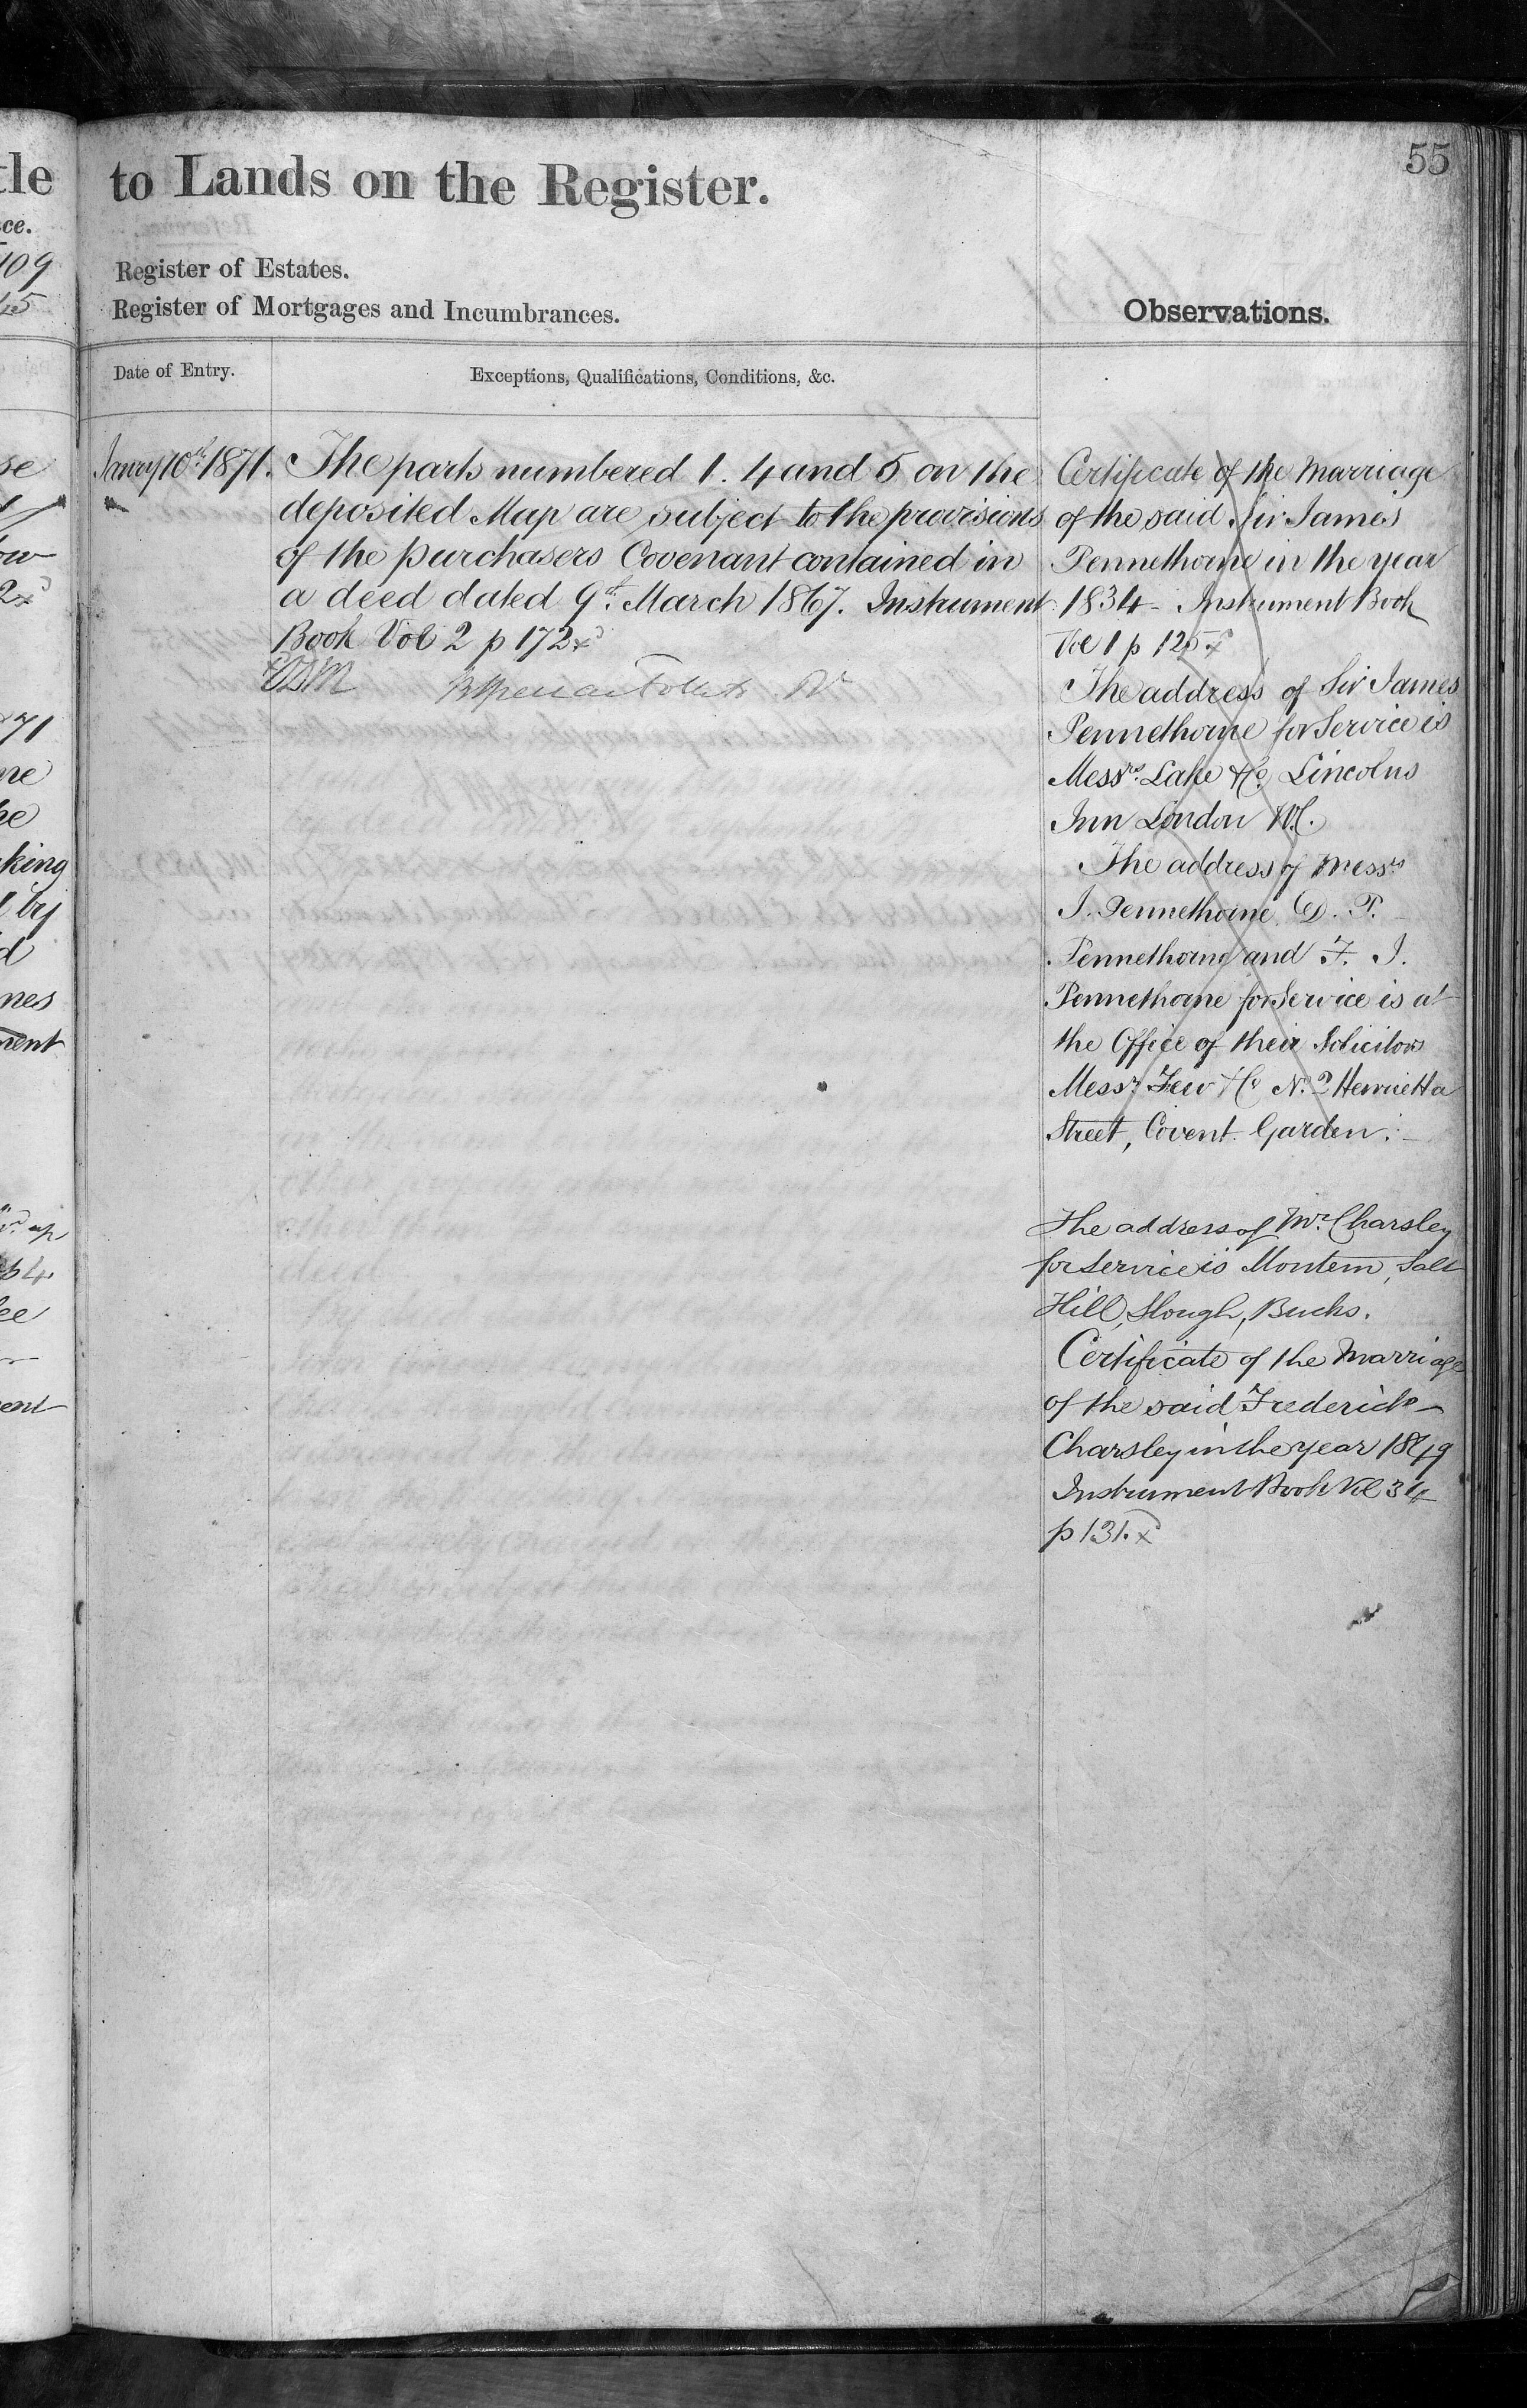 55
to Lands on the Register.
Register of Estates.
Register of Mortgages and Incumbrances.
Observations.
Date of Entry.
Exceptions, Qualifications, Conditions, &c.
Janry 10th 1871.
The parts numbered 1. 4 and 5 on the
deposited Map are subject to the provisions
of the purchasers Covenant contained in
a deed dated 9th March 1867. Instrument
Book Vol 2 p 172
Certificate of the Marriage
of the said Sir James
Pennethorne in the year
1834 - Instrument Book
Vol 1 p 125
The address of Sir James
Pennethorne for Service is
Messrs. Lake & Co. Lincolns
Inn London W.C.
The address of Messrs
J. Pennethorne, D. P.
Pennethorne and F. J.
Pennethorne for Service is at
the Office of their Solicitors
Messrs Few & Co No. 2 Henrietta
Street, Covent Garden.
The address of Mr. Charsley
for Service is Montem, Salt
Hill, Slough, Bucks.
Certificate of the Marriage
of the said Frederick
Charsley in the year 1849
Instrument Book Vol 34
p 131.
tle
ce.
109
45
se
ow
71
he
king
by
d
mes
ment
ent